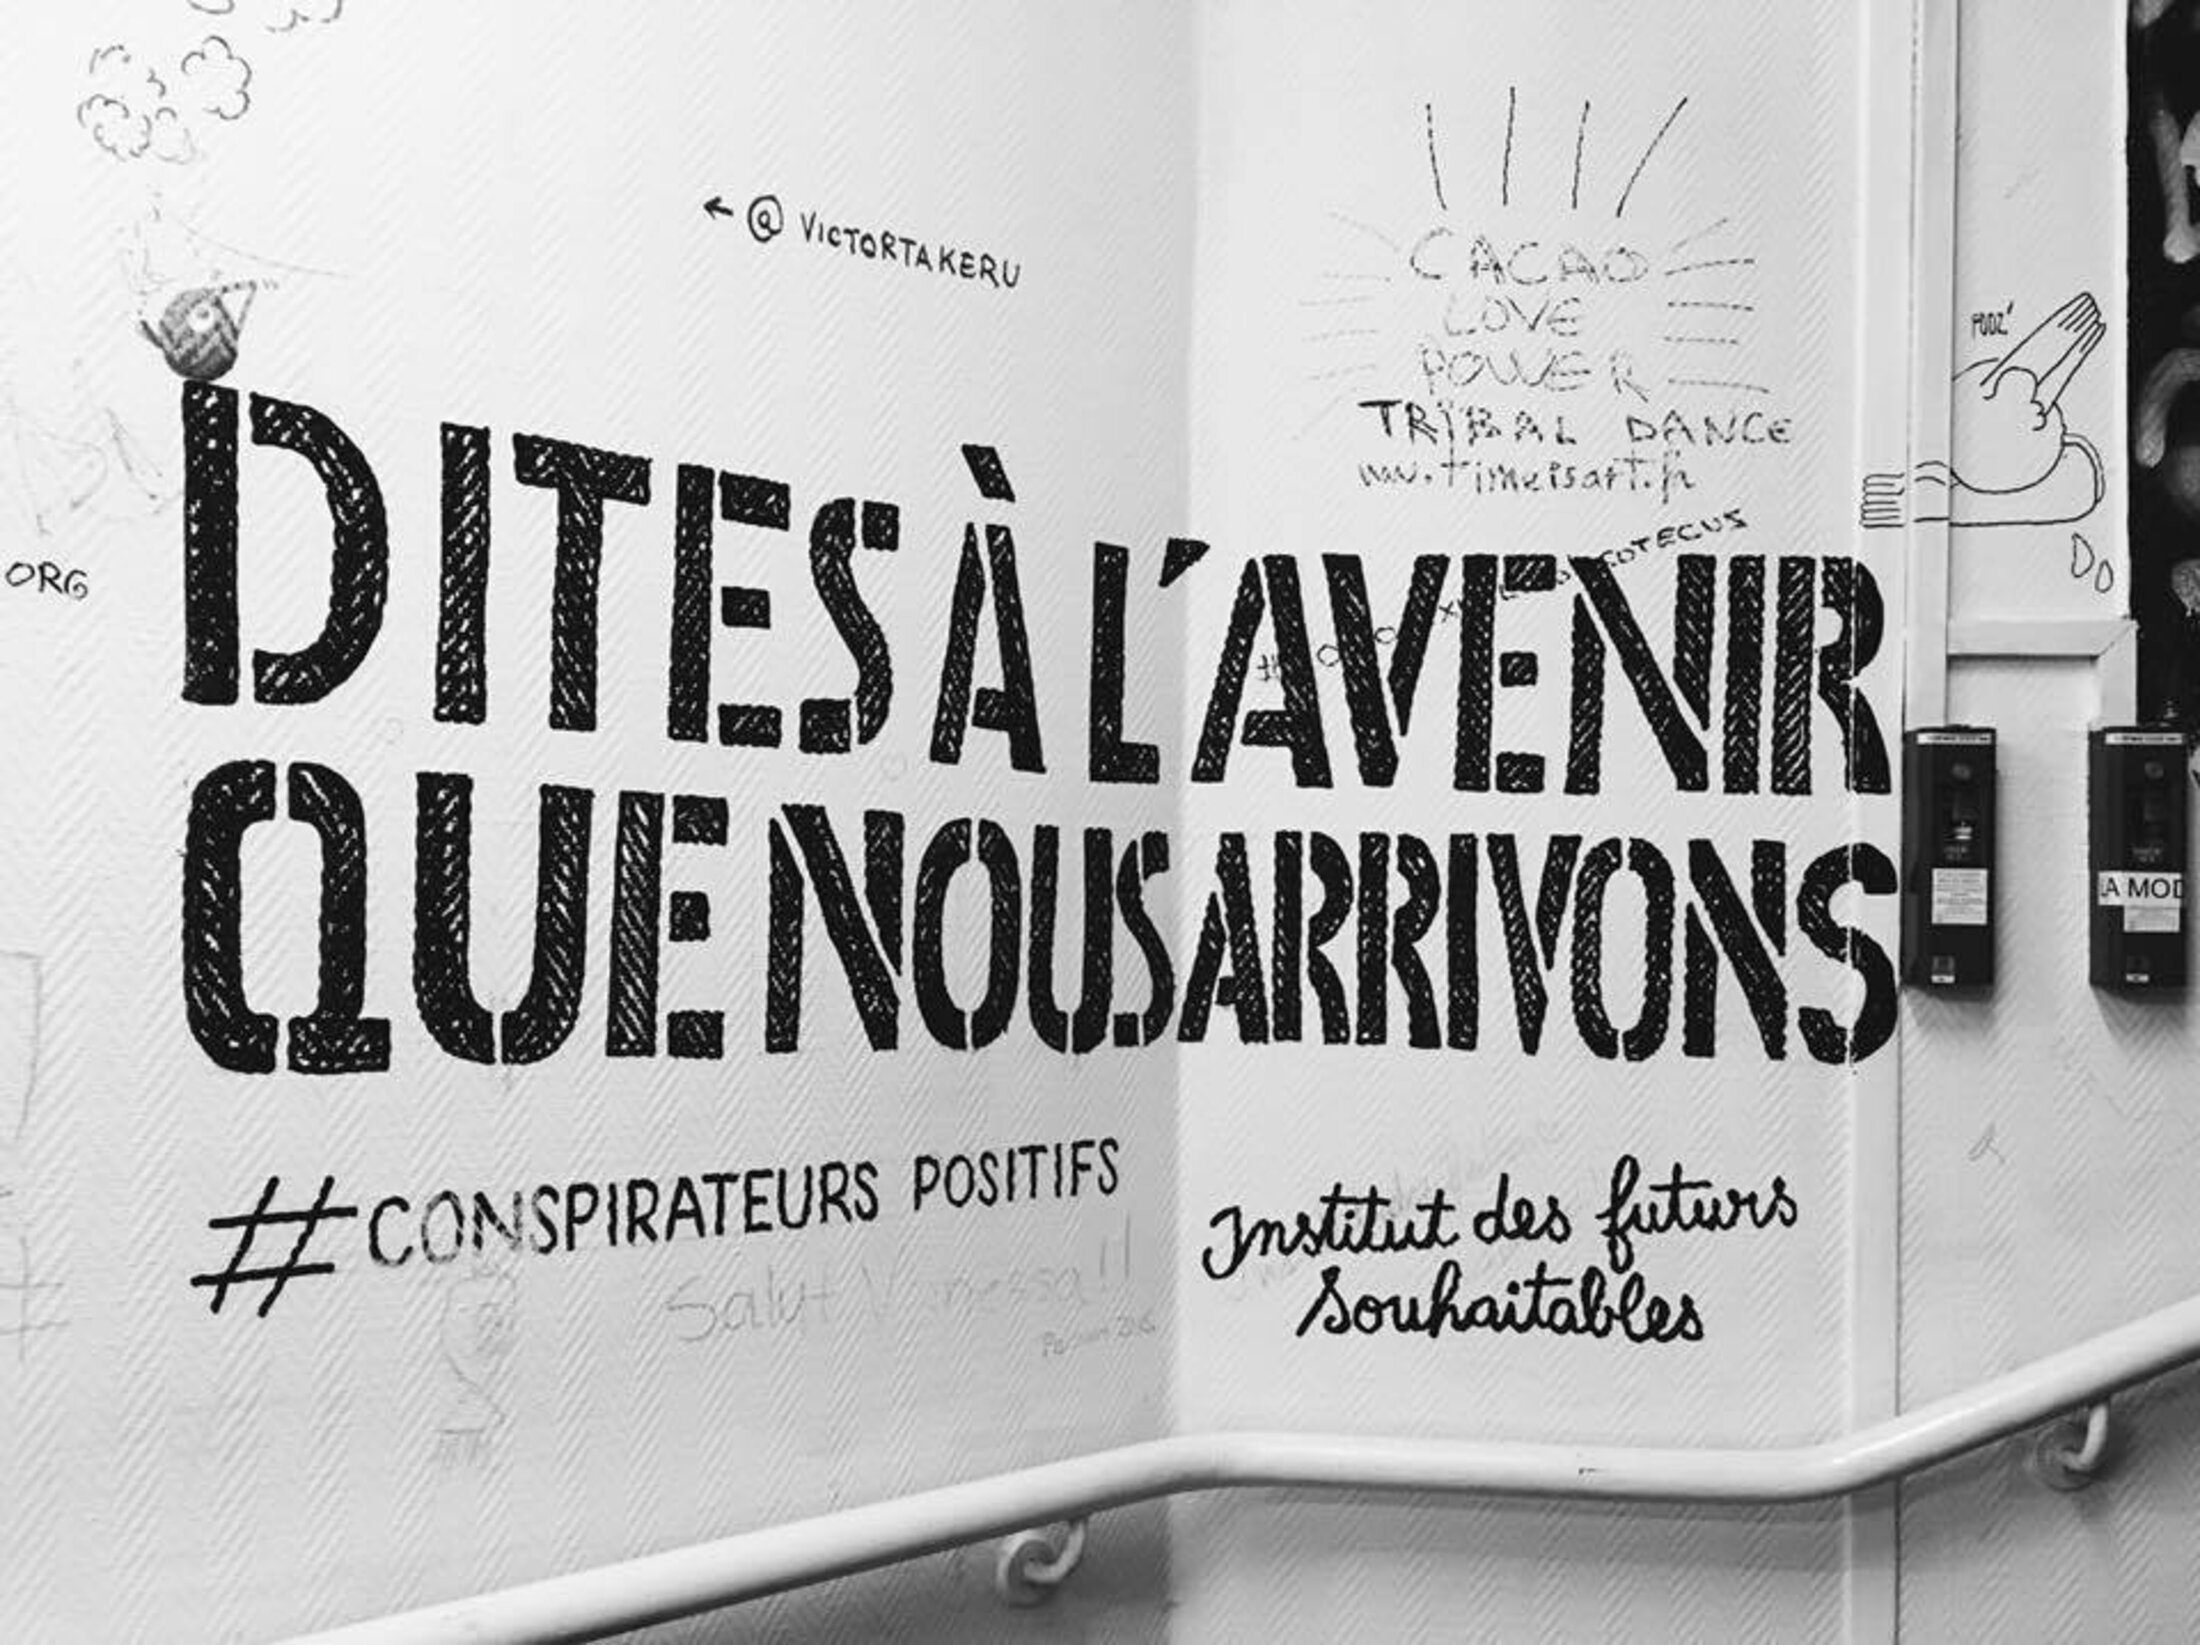 @VICTORTAKERU
CACAO
LOVE
POWER
TRIBAL DANCE
POOZ'
ORG
DITES À L'AVENIR
QUE NOUS ARRIVONS
A MOD
#CONSPIRATEURS POSITIFS
Salut Vanessa!!
Institut des futurs
Souhaitables